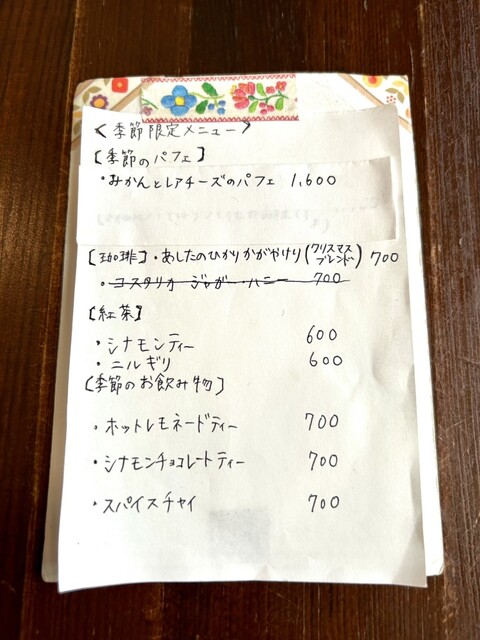 <季節限定メニュー>
[季節のパフェ]
・みかんとレアチーズのパフェ 1,600
[珈琲]・あしたのひかりかがやけり(クリスマスブレンド) 700
・コスタリカ ジャガー・ハニー 700
[紅茶]
・シナモンティー 600
・ニルギリ 600
[季節のお飲み物]
・ホットレモネードティー 700
・シナモンチョコレートティー 700
・スパイスチャイ 700